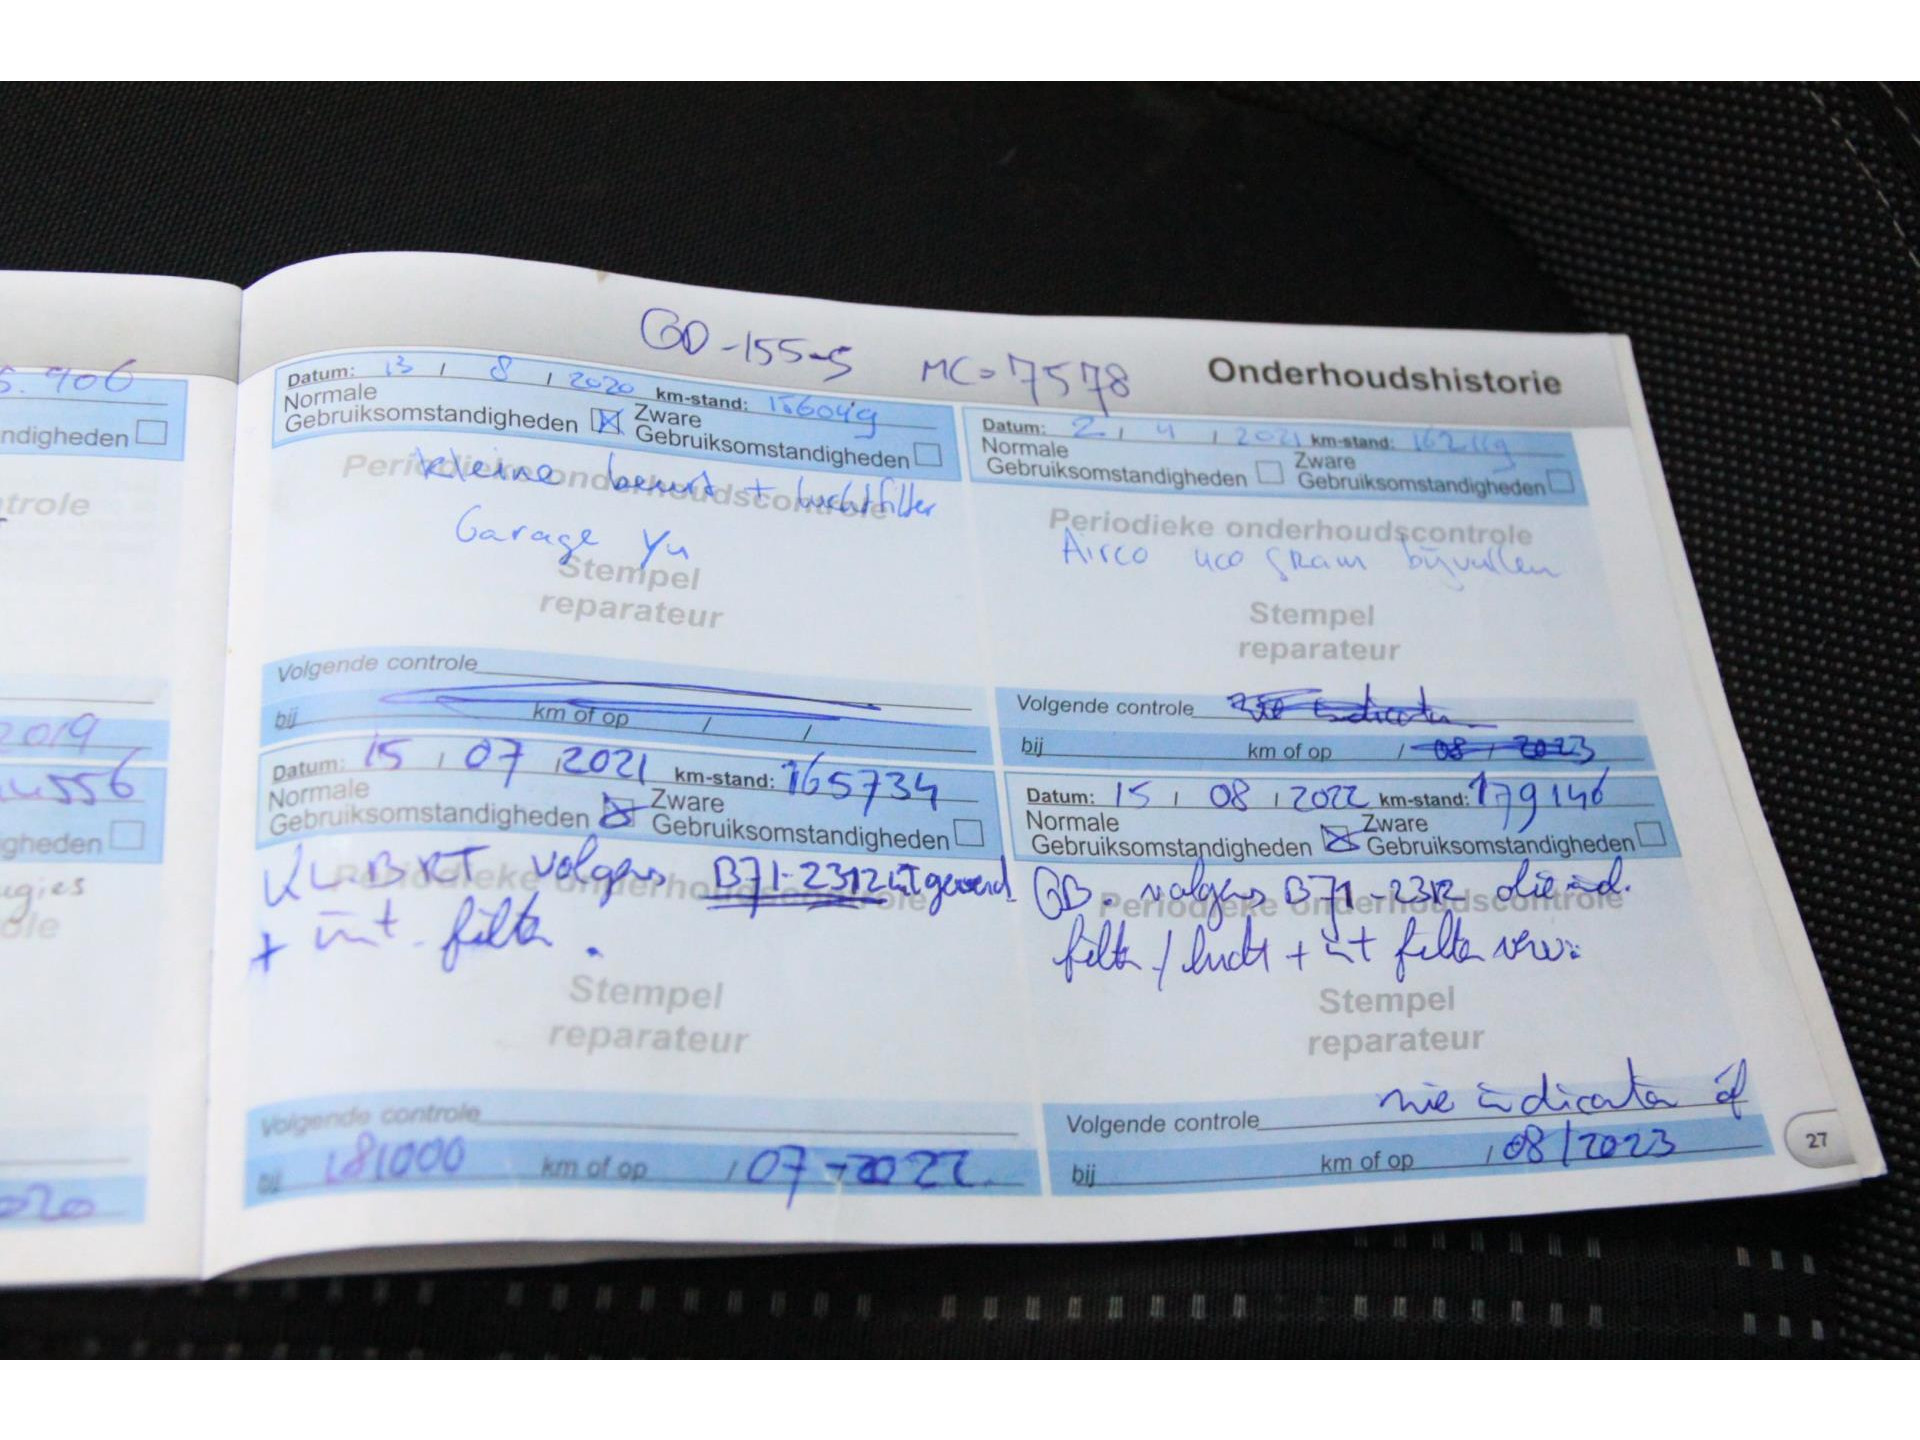 5.906
ndigheden
trole
2019
556
gheden
ugies
ole
2020
GD-155-S MC=7578
Onderhoudshistorie
Datum: 13 / 8 / 2020 km-stand: 156049
Normale
Gebruiksomstandigheden
Zware
Gebruiksomstandigheden
Periodieke onderhoudscontrole
kleine beurt + luchtfilter
Garage Yu
Stempel
reparateur
Volgende controle
bij km of op / /
Datum: 2 / 4 / 2021 km-stand: 162119
Normale
Gebruiksomstandigheden
Zware
Gebruiksomstandigheden
Periodieke onderhoudscontrole
Airco 400 gram bijvullen
Stempel
reparateur
Volgende controle zie indicator
bij km of op / 08 / 2023
Datum: 15 / 07 / 2021 km-stand: 165734
Normale
Gebruiksomstandigheden
Zware
Gebruiksomstandigheden
Periodieke onderhoudscontrole
KL BRT volgens B71-2312 uitgevoerd
+ int. filter.
Stempel
reparateur
Volgende controle
bij 181000 km of op / 07-2022.
Datum: 15 / 08 / 2022 km-stand: 179146
Normale
Gebruiksomstandigheden
Zware
Gebruiksomstandigheden
Periodieke onderhoudscontrole
GB. volgens B71-2312 olie
filter / lucht + int filter
Stempel
reparateur
Volgende controle indicator of
bij km of op / 08/2023
27